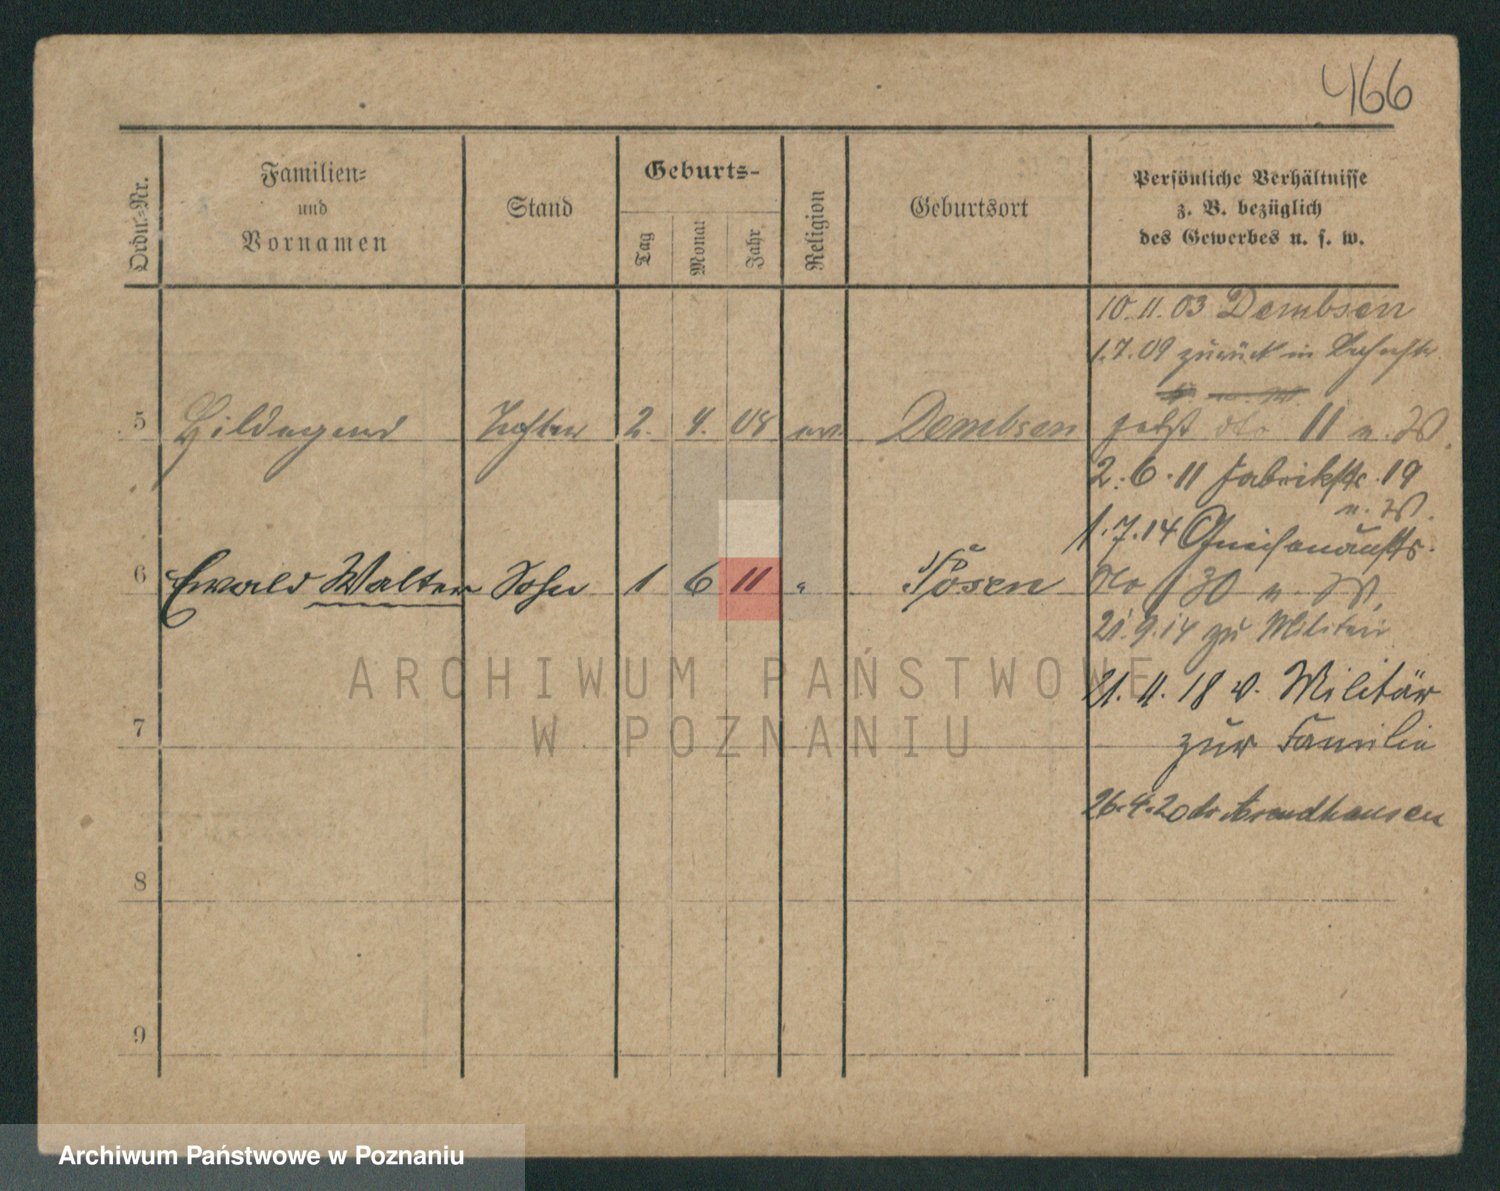 466
Ordn.-Nr.
Familien-
und
Vornamen
Stand
Geburts-
Tag
Monat
Jahr
Religion
Geburtsort
Persönliche Verhältnisse
z. B. bezüglich
des Gewerbes u. s. w.
10.11.03 Dembsen
1.7.09 zurück in
5 Hildegard Tochter 2. 4. 08 ev. Dembsen jetzt dto 11 u. W.
2.6.11 Fabrikstr. 19
u. W.
1.7.14 Gneisenaustr.
6 Ewald Walter Sohn 1 6 11 " Posen dto 30 u. W.
21.9.14 zu Militär
21.11.18 v. Militär
7 zur Familie
26.4.20
8
9
ARCHIWUM PAŃSTWOWE
W POZNANIU
Archiwum Państwowe w Poznaniu